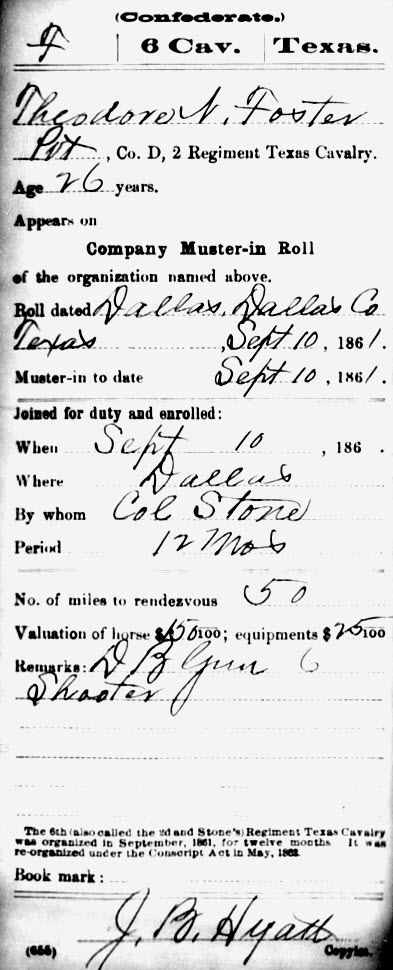 (Confederate.)
F | 6 Cav. | Texas.
Theodore N. Foster
Pvt , Co. D, 2 Regiment Texas Cavalry.
Age 26 years.
Appears on
Company Muster-in Roll
of the organization named above.
Roll dated Dallas, Dallas Co
Texas , Sept 10, 1861.
Muster-in to date Sept 10, 1861.
Joined for duty and enrolled:
When Sept 10 , 186 .
Where Dallas
By whom Col Stone
Period 12 Mos
No. of miles to rendezvous 50
Valuation of horse $150 100; equipments $25 100
Remarks: D B Gun 6
Shooter
The 6th (also called the 2d and Stone's) Regiment Texas Cavalry
was organized in September, 1861, for twelve months. It was
re-organized under the Conscript Act in May, 1862.
Book mark:
J. B. Hyatt
(655) Copyist.